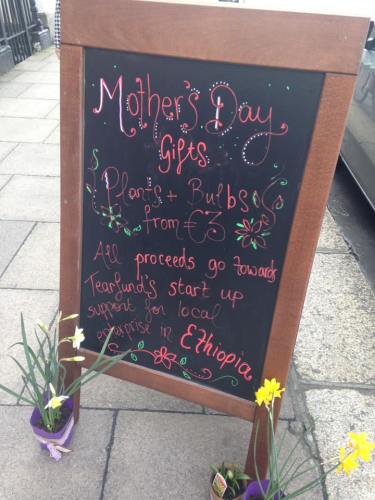 Mother's Day
Gifts
Plants + Bulbs
from €3
All proceeds go towards
Tearfund's start up
support for local
enterprise in Ethiopia